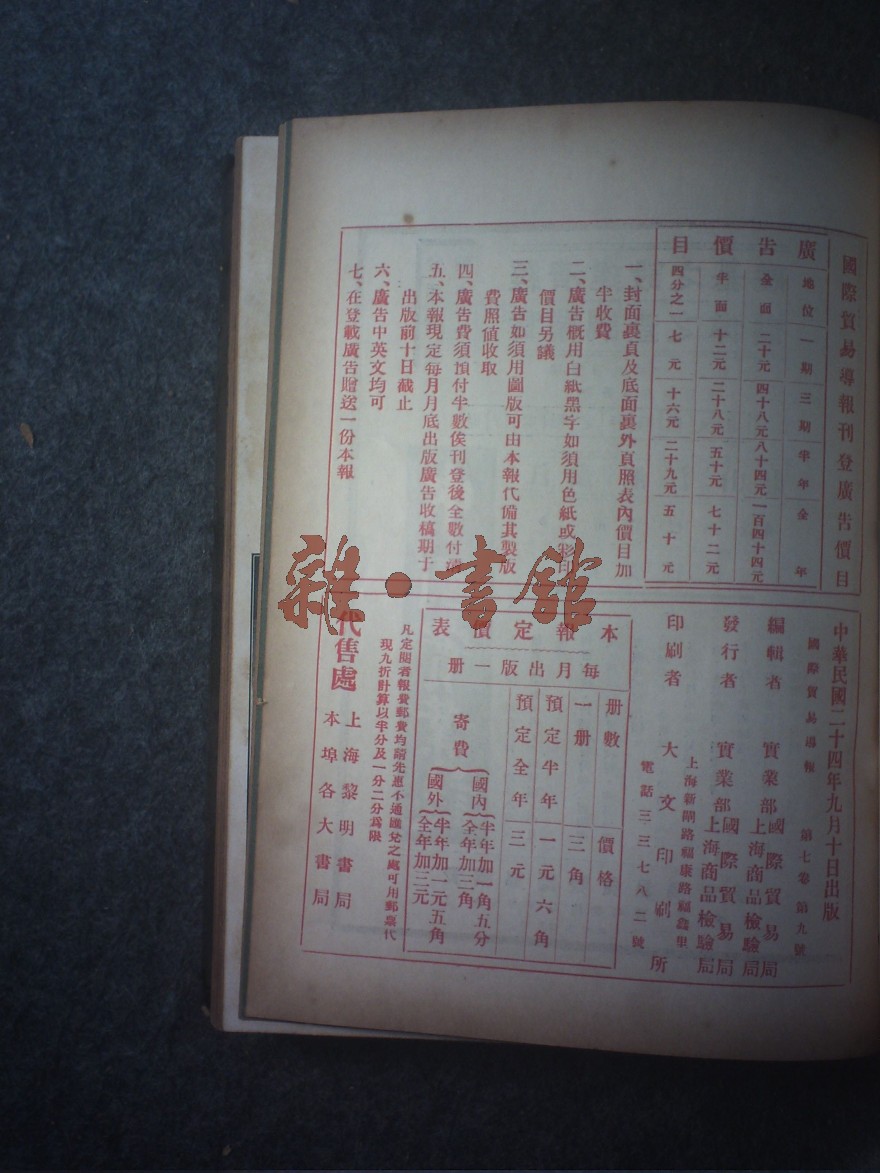 國際貿易導報刊登廣告價目
廣告價目
地位 一期 三期 半年 全年
全面 二十元 四十八元 八十四元 一百四十四元
半面 十二元 二十八元 五十元 七十二元
四分之一 七元 十六元 二十九元 五十元
一、封面裏頁及底面裏外頁照表內價目加
半收費
二、廣告概用白紙黑字如須用色紙或彩印
價目另議
三、廣告如須用圖版可由本報代備其製版
費照値收取
四、廣告費須預付半數俟刊登後全數付清
五、本報現定每月月底出版廣告收稿期于
出版前十日截止
六、廣告中英文均可
七、在登載廣告贈送一份本報
中華民國二十四年九月十日出版
國際貿易導報 第七卷 第九號
編輯者 實業部國際貿易局
上海商品檢驗局
發行者 實業部國際貿易局
上海商品檢驗局
印刷者 大文印刷所
上海新閘路福康路福鑫里
電話三三七八二號
本報定價表
每月出版一册
册數 價格
一册 三角
預定半年 一元六角
預定全年 三元
寄費
國內 半年加一角五分
全年加三角
國外 半年加一元五角
全年加三元
凡定閱者報費郵費均請先惠不通匯兌之處可用郵票代
現九折計算以半分及一分二分爲限
代售處
上海黎明書局
本埠各大書局
雜·書館